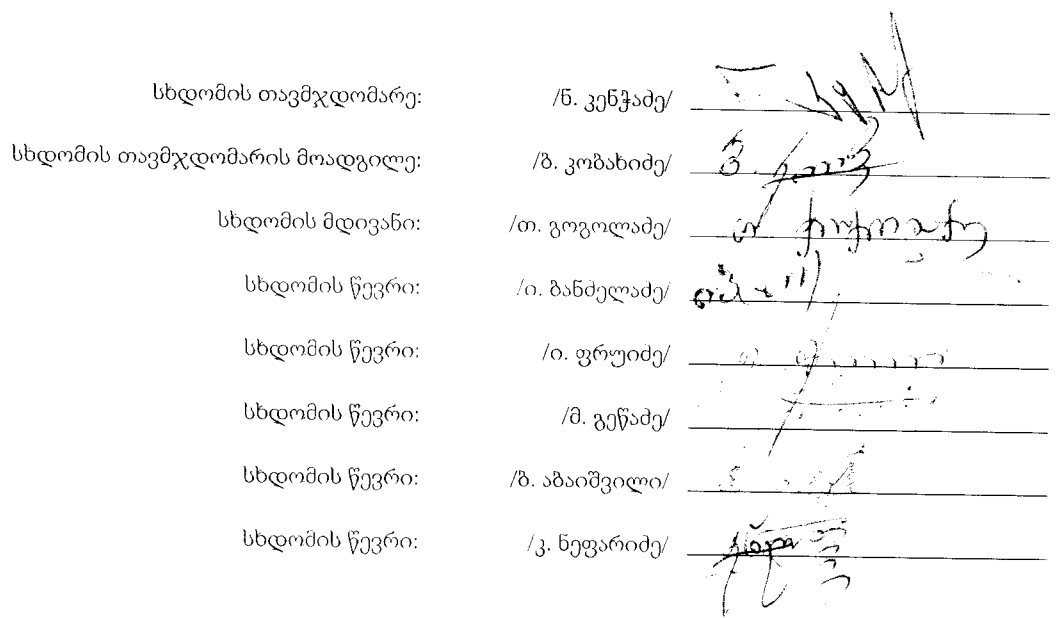 სხდომის თავმჯდომარე: /ნ. კენჭაძე/
სხდომის თავმჯდომარის მოადგილე: /ბ. კობახიძე/
სხდომის მდივანი: /თ. გოგოლაძე/
სხდომის წევრი: /ი. ბანძელაძე/
სხდომის წევრი: /ი. ფრუიძე/
სხდომის წევრი: /მ. გეწაძე/
სხდომის წევრი: /ბ. აბაიშვილი/
სხდომის წევრი: /კ. ნეფარიძე/